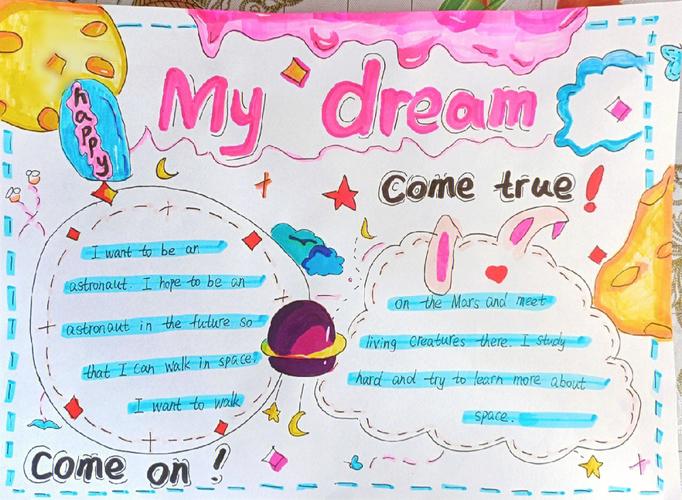 My dream
happy
Come true!
I want to be an
astronaut. I hope to be an
astronaut in the future so
that I can walk in space.
I want to walk
on the Mars and meet
living creatures there. I study
hard and try to learn more about
space.
Come on!